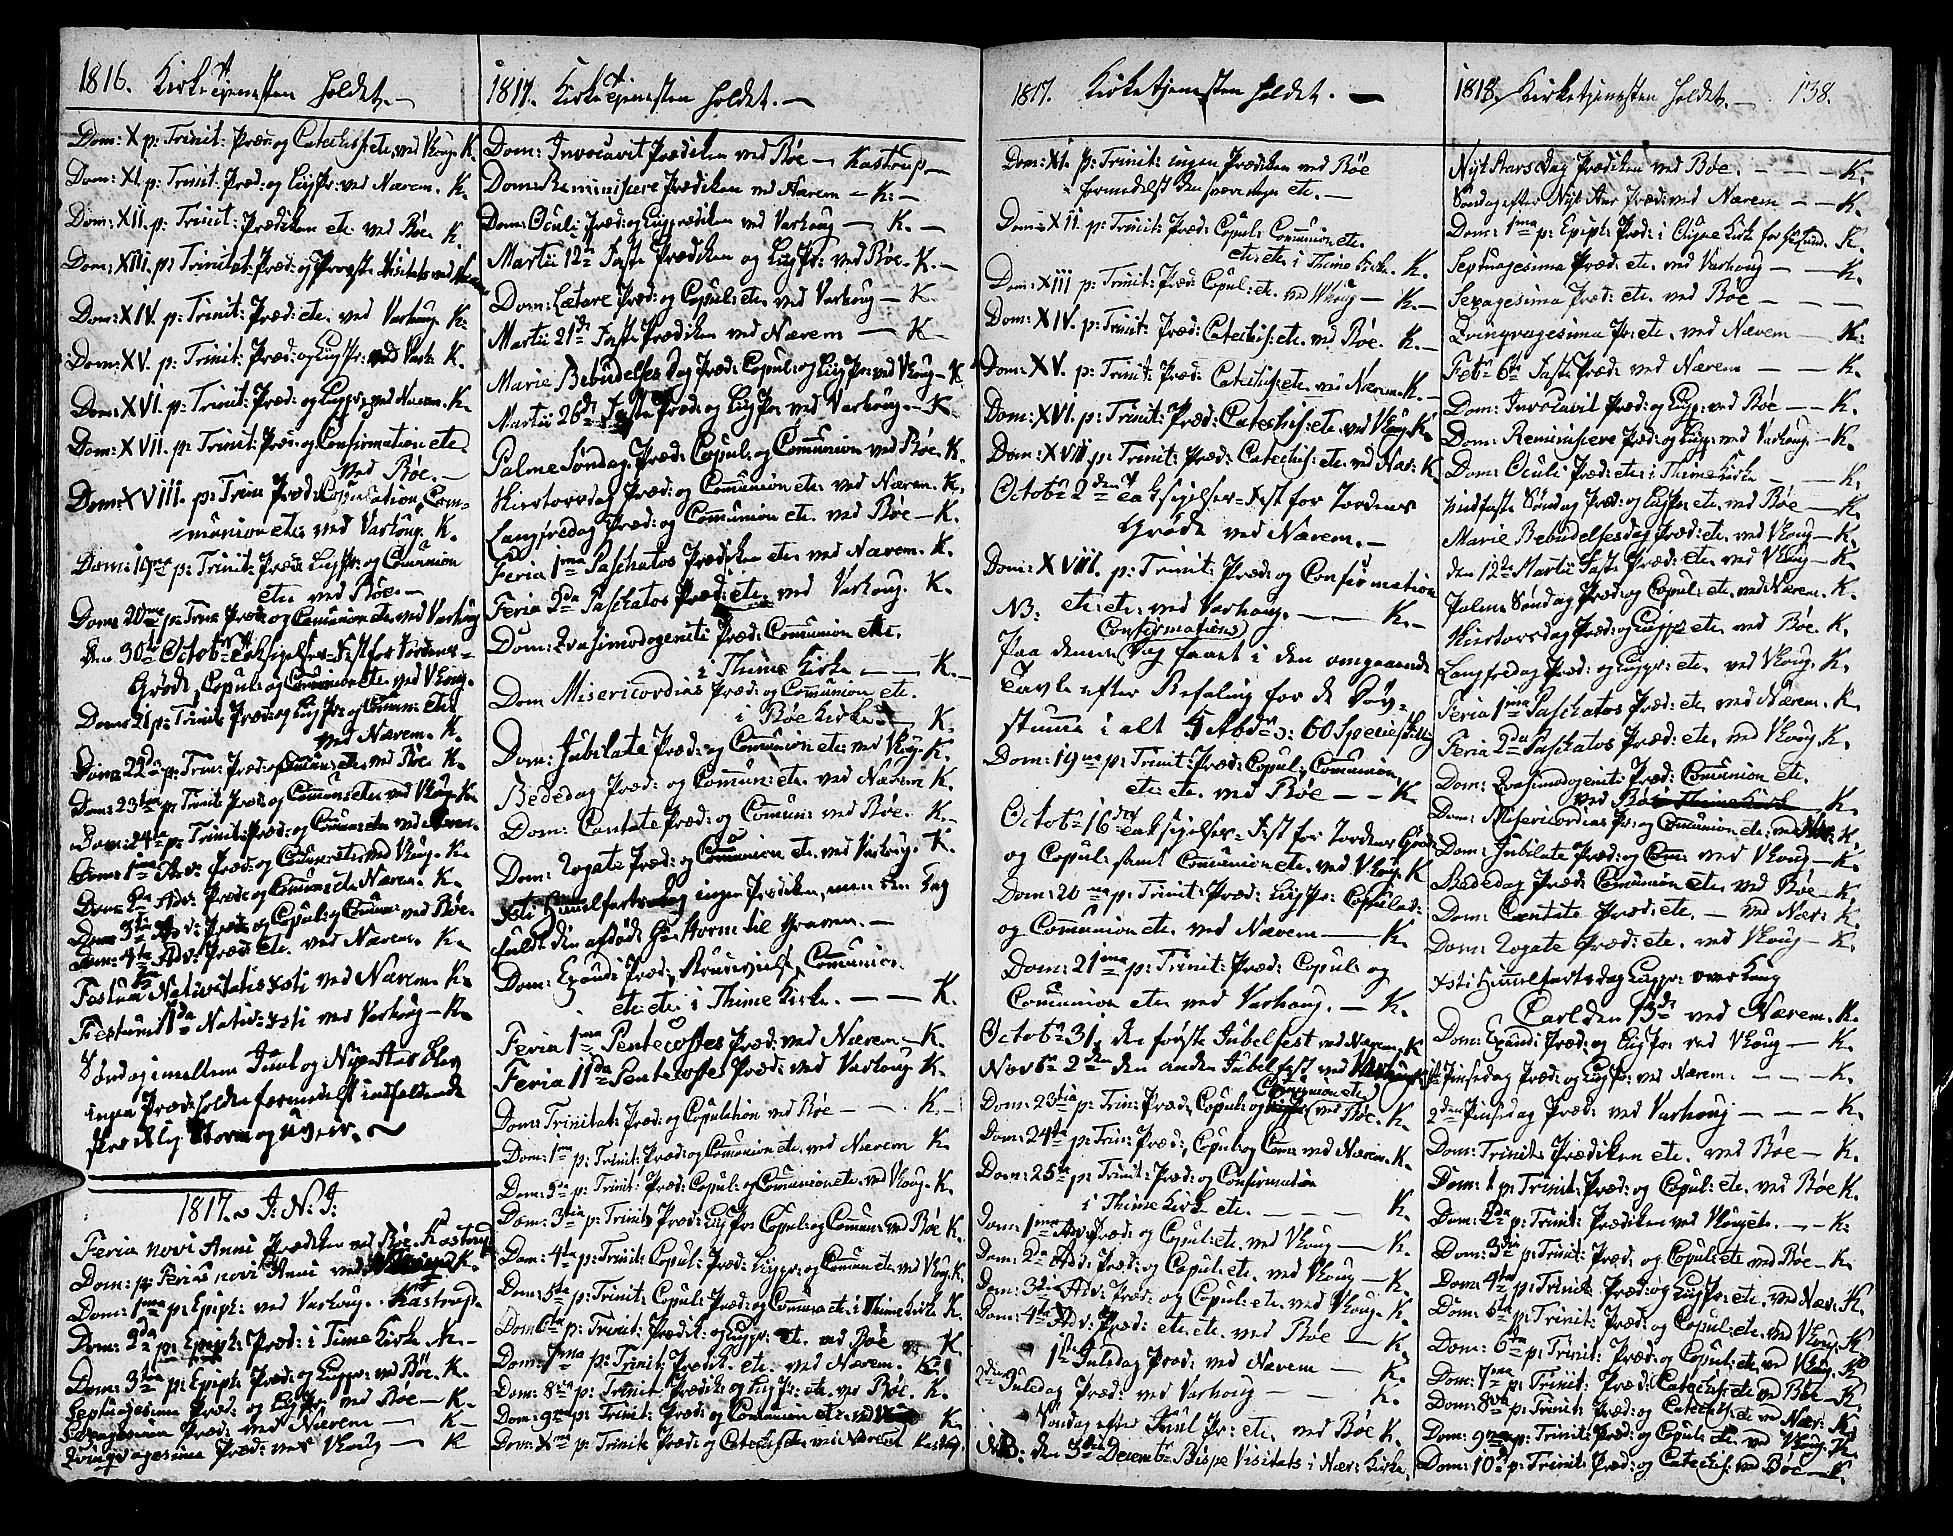 1816. Kirketjenesten holdet.
Dom: X p: Trinit: Præd: og Catechis: etc. ved Vhoug. K.
Dom: XI. p: Trinit: Præd: og Liigpr: ved Nærem. K.
Dom: XII. p: Trinit: Prædiken etc. ved Böe. K.
Dom: XIII. p: Trinitat: Præd: og Provste Visitats ved
Dom: XIV. p: Trinit: Præd: etc. ved Varhoug. K.
Dom: XV. p: Trinit: Præd: og Liigpr: ved Varh. K.
Dom: XVI. p: Trinit: Præd: og Liigpr: ved Nærem. K.
Dom: XVII. p: Trinit: Præd: og Confirmation etc.
ved Böe. —
Dom: XVIII. p: Trin: Præd: Copulation, Com-
munion etc. ved Varhoug. K.
Dom: 19na p: Trinit: Præd: Liigpr: og Comunion
etc. ved Böe. —
Dom: 20me p: Trin: Præd: og Comunion etc. ved Varhoug
Den 30te Octobr Taksigelses-Fest for Jordens
Gröde, Copul: og Comunion etc. ved Vhoug.
Dom: 21 p: Trinit: Præd: og Liigpr: og Comun: etc.
ved Nærem. K.
Dom: 22da p: Trin: Præd: og Comun: etc. ved Böe. K.
Dom: 23tia p: Trinit: Præd: og Comun: etc. ved Vhoug. K.
Dom: 24ta p: Trinit: Præd: og Comun: etc. ved Nærem.
Dom: 1ma Adv: Præd: og Comun: etc. ved Vhoug. K.
Dom: 2da Adv: Præd: og Comun: etc. Nærem. K.
Dom: 3tia Adv: Præd: Copul: og Comun: ved Böe.
Dom: 4ta Adv: Præd: etc. ved Nærem. K.
Festum Nativitatis Xsti ved Nærem. K.
Festum IIda Nativ: Xsti ved Varhoug — K.
Söndag imellem Juul og Nyeaar blev
ingen Præd: holden formedelst indfaldende
skrækelig Storm og
1817. I: N: I:
Feria novi Anni Prædiken ved Böe. Kastrup
Dom: p: Ferias novi Anni ved K.
Dom: 1ma p: Epiph: ved Varhoug. Kastrup.
Dom: 2da p: Epiph: Præd: i Time Kirke K. —
Dom: 3tia p: Epiph: Præd: og Liigpr: ved Böe. K.
Septuagesima Præd: og Liigpr: ved Böe — K.
Sexagesima Præd: ved Nærem — K —
Qvinqvagesima Præd: ved Vhoug — K
1817. Kirketjenesten holdet. —
Dom: Invocavit Prædiken ved Böe — Kastrup —
Dom: Reminisere Prædiken ved Nærem — K. —
Dom: Oculi Præd: og Liigprædiken ved Varhoug — K. —
Martii 12te Faste Prædiken og Liigpr: ved Böe. K. —
Dom: Lætare Præd: og Copul: etc. ved Varhoug — K.
Martii 21de Faste Prædiken ved Nærem — K —
Mariæ Bebudelses Dag Præd: Copul: og Liigpr: ved Vhoug — K.
Martii 26de Faste Præd: og Liigpr: ved Varhoug. — K
Palme Söndag, Præd: Copul: og Comunion ved Böe. K.
Skiertorsdag Præd: og Comunion etc. ved Nærem. K.
Langfredag Præd: og Comunion etc. ved Böe — K.
Feria 1ma Paschatos Prædiken etc. ved Nærem. K.
Feria 2da Paschatos Præd: etc. ved Varhoug. K.
Dom: Qvasimodogeniti Præd: Comunion etc.
i Thime Kirke — — K.
Dom: Misericordias Præd: og Comunion etc.
i Böe Kirke — K.
Dom: Jubilate Præd: og Comunion etc. ved Vhoug. K.
Bededag Præd: og Comun: etc. ved Nærem K.
Dom: Cantate Præd: og Comun: ved Böe. K.
Dom: Rogate Præd: og Comunion etc. ved Varhoug. K.
Xsti Himelfartsdag ingen Prædiken, men den Dag
fuldt den afdöde Hr Storm til Graven. —
Dom: Exaudi Præd: Comunion
etc. etc. i Thime Kirke. — — K.
Feria 1ma Pentecostes Præd: ved Nærem — K.
Feria IIda Pentecostes Præd: ved Varhoug K.
Dom: Trinitat: Præd: og Copulation ved Böe — — K.
Dom: 1ma p: Trinit: Præd: og Comunion etc. ved Nærem K.
Dom: 2da p: Trinit: Præd: Copul: og Comunion etc. ved Vhoug. K.
Dom: 3tia p: Trinit: Præd: Liigpr: Copul: og Comun: ved Böe K.
Dom: 4ta p: Trinit: Copul: Præd: Liigpr: og Comun etc. ved Vhoug. K.
Dom: 5ta p: Trinit: Copul: Præd: og Comun: etc. i Thime Kirke K.
Dom: 6ta p: Trinit: Prædik: og Liigpr: etc. ved Böe K.
Dom: 7ma p: Trinit: Prædik. etc. ved Nærem. K.
Dom: 8va p: Trinit: Prædik: og Liigpr: etc. ved Böe. K.
Dom: 9na p: Trinit: Præd: og Comunion etc. ved K.
Dom: Xma p: Trinit: Præd: og Catechis: etc. ved Nærem Kastrup.
1817. Kirketjenesten holdet. —
Dom: XI. p: Trinit: ingen Prædiken ved Böe
formedelst etc. —
Dom: XII. p: Trinit: Præd: Copul: Comunion etc.
etc. etc. i Thime Kirke. K.
Dom: XIII p: Trinit: Præd: Copul: etc. ved Vhoug — K.
Dom: XIV. p: Trinit: Præd: Catechis: etc. ved Böe. K.
Dom: XV. p: Trinit: Præd: Catechis: etc. ved Nærem K. —
Dom: XVI. p: Trinit: Præd: Catechis: etc. ved Vhoug. K.
Dom: XVII p: Trinit: Præd: Catechis: etc. ved Nær: K
Octobr 2den Taksigelses-Fest for Jordens
Gröde ved Nærem. —
Dom: XVIII. p: Trinit: Præd: og Confirmation
NB. etc. etc. ved Varhoug. — — K. —
Confirmations
Paa denne Dag faaet i den omgaaende
Tavle efter Befaling for de Döv-
stumme i alt 4 Rbdr 3: 60 Specieskill.
Dom: 19na p: Trinit: Præd: Copul: Comunion
etc. etc. ved Böe — — K
Octobr 16de Taksigelses-Fest for Jordens Gröde
og Copul: samt Comunion etc. ved Vhoug. K
Dom: 20na p: Trinit: Præd: Liigpr: Copulat:
og Comunion etc. ved Nærem — K.
Dom: 21ma p: Trinit: Præd: Copul: og
Comunion etc. ved Varhoug. — K.
Octobr 31. den förste Jubelfest ved Nærem. K
Novbr 2den den anden Jubelfest ved Varhoug
Comunion etc.
Dom: 23tia p: Trin: Præd: Copul: og ved Böe. K.
Dom: 24ta p: Trin: Præd: Copul: og Comun: ved Nærem. K.
Dom: 25ta p: Trinit: Præd: og Confirmation
i Thime Kirke etc. — — — K.
Dom: 1ma Adv: Præd: og Copul: etc. ved Vhoug — K.
Dom: 2da Adv: Præd: og Copul: etc. ved Vhoug — K.
Dom: 3tia Adv: Præd: og Copul: etc. ved Vhoug. K.
Dom: 4ta Adv: Præd: etc. etc. ved Böe — K.
1ste Juledag Præd: ved Nærem — K.
2den Juledag Præd: ved Varhoug — K.
Söndag efter Juul Pr: etc. ved Böe K.
NB: den 3die Decembr Bispe Visitats i Nær: Kirke.
1818. Kirketjenesten holdet. — 138.
Nyt Aars Dag Prædiken ved Böe. — — — K.
Söndag efter Nyt Aar Præd: ved Nærem — — K.
Dom: 1ma p: Epiph: Præd: i Kirke for K.
Septuagesima Præd: etc. ved Varhoug — — K.
Sexagesima Præd: etc. ved Böe — — —
Qvinqvagesima Pr: etc. ved Nærem — K.
Febr 6te Faste Præd: ved Nærem — — K.
Dom: Invocavit Præd: og Liigp: ved Böe — — K.
Dom: Reminisere Præd: og Liigp: ved Varhoug — K.
Dom: Oculi Præd: etc: i Thime Kirke — — K.
Midfaste Söndag Præd: og Liigpr: etc. ved Böe — K.
Mariæ Bebudelsesdag Præd: etc. ved Vhoug — K.
den 12te Martii Faste Præd: etc. ved Vhoug — K.
Palme Söndag Præd: og Copul: etc. ved Nærem. K.
Skiertorsdag Præd: og Liigpr: etc. ved Böe. K.
Langfredag Præd: og Liigpr: etc. ved Vhoug. K.
Feria 1ma Paschatos Præd: etc. ved Nærem. K.
Feria 2da Paschatos Præd: etc. ved Vhoug. K.
Dom: Qvasimodogeniti Præd: Comunion etc.
ved Böe K.
Dom: Misericordias Pr: og Comunion etc. ved Nær: K.
Dom: Jubilate Præd: og Com: ved Vhoug — K.
Bededag Præd: Comunion etc. ved Böe — K
Dom: Cantate Præd: etc. — ved Nær: K.
Dom: Rogate Præd: etc. ved Vhoug — K.
Xsti Himmelfartsdag Liigpr: over Kong
Carl den 13de ved Nærem. K.
Dom: Exaudi Præd: og Liigpr: ved Vhoug — K.
1ste Pinsedag Præd: og Liigpr: ved Nærem. — — — K.
2den Pinsedag Præd: ved Varhoug — — — K.
Dom: Trinit: Prædiken etc. ved Böe — K.
Dom: 1 p: Trinit: Præd: og Copul: etc. ved Böe K.
Dom: 2da p: Trinit: Prædiken ved Vhoug etc. — — K.
Dom: 3tia p: Trinit: Præd: og Copul: etc. ved Böe — K.
Dom: 4ta p: Trinit: Præd: og Liigpr: etc. ved Nær: K.
Dom: 5ta p: Trinit: Præd: og Copul: etc. ved Vhoug. K
Dom: 6ta p: Trinit: Præd: og Copul: etc. ved Vhoug. K
Dom: 7ma p: Trinit: Præd: Catechis: etc. ved Böe — K.
Dom: 8va p: Trinit: Præd: og Catechis: etc. ved Nær: K.
Dom: 9na p: Trinit: Præd: og Copul: etc. ved Vhoug. K
Dom: 10d p: Trinit: Præd: og Catechis: ved Böe — K.